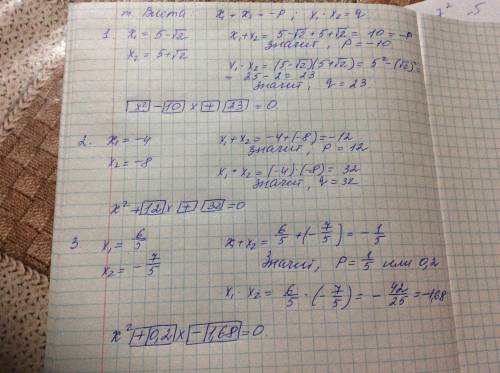 т. Виета: x₁ + x₂ = -p; x₁ · x₂ = q
1. x₁ = 5-√2 x₁+x₂ = 5-√2+5+√2 = 10 = -p
x₂ = 5+√2 значит, p = -10
x₁ · x₂ = (5-√2)(5+√2) = 5² - (√2)² =
= 25 - 2 = 23
значит, q = 23.
x² - 10 x + 23 = 0.
2. x₁ = -4 x₁+x₂ = -4+(-8) = -12
x₂ = -8 значит, p = 12
x₁ · x₂ = (-4)·(-8) = 32
значит, q = 32
x² + 12 x + 32 = 0
3. x₁ = 6/5 x₁+x₂ = 6/5 + (-7/5) = -1/5
x₂ = -7/5 значит, p = 1/5 или 0,2
x₁ · x₂ = 6/5 · (-7/5) = -42/25 = -1,68
x² + 0,2 x - 1,68 = 0.